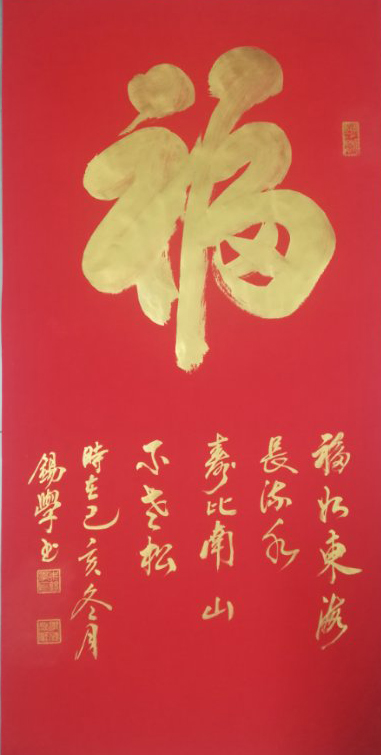 福
福如東海
長流水
壽比南山
不老松
時在己亥冬月
錫學书